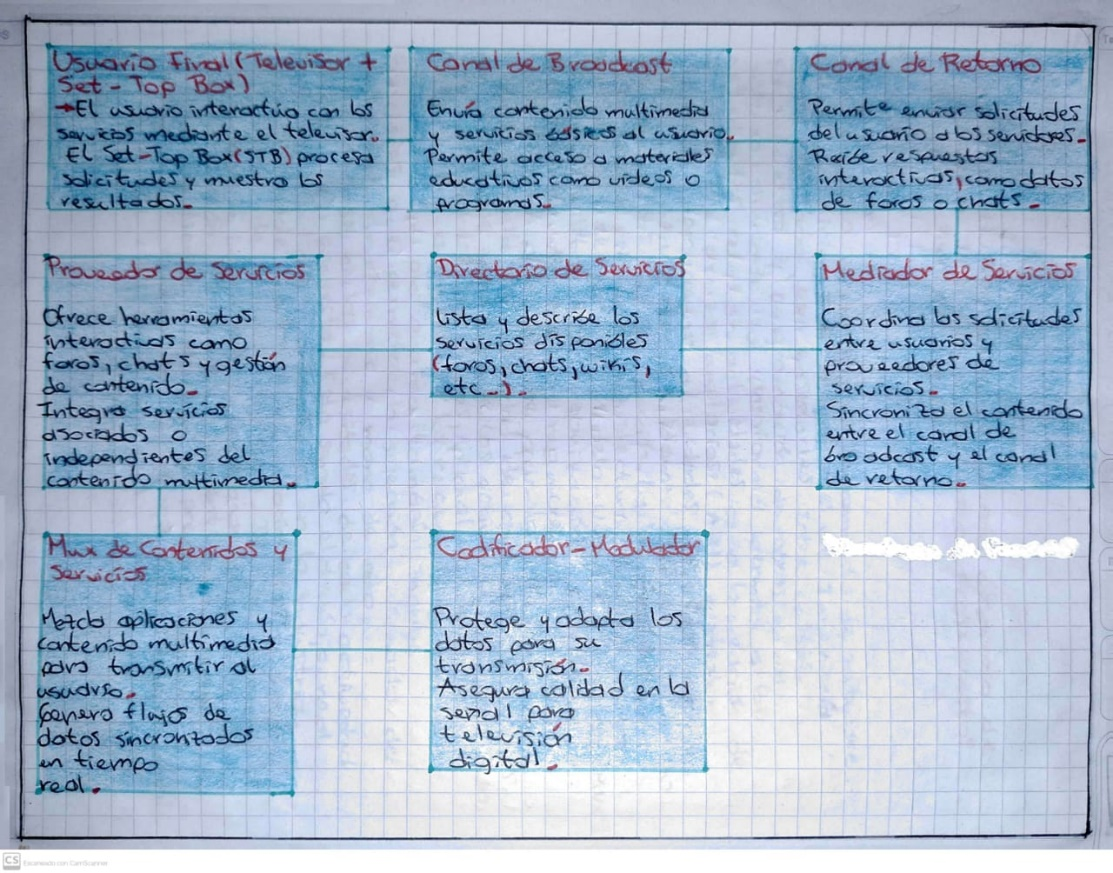 Usuario Final (Televisor +
Set-Top Box)
→El usuario interactúa con los
servicios mediante el televisor.
El Set-Top Box (STB) procesa
solicitudes y muestra los
resultados.
Canal de Broadcast
Envía contenido multimedia
y servicios básicos al usuario.
Permite acceso a materiales
educativos como videos o
programas.
Canal de Retorno
Permite enviar solicitudes
del usuario a los servidores.
Recibe respuestas
interactivas, como datos
de foros o chats.
Proveedor de Servicios
Ofrece herramientas
interactivas como
foros, chats y gestión
de contenido.
Integra servicios
asociados o
independientes del
contenido multimedia.
Directorio de Servicios
Lista y describe los
servicios disponibles
(foros, chats, wikis,
etc..).
Mediador de Servicios
Coordina las solicitudes
entre usuarios y
proveedores de
servicios.
Sincroniza el contenido
entre el canal de
broadcast y el canal
de retorno.
Mux de Contenidos y
Servicios
Mezcla aplicaciones y
contenido multimedia
para transmitir al
usuario.
Genera flujos de
datos sincronizados
en tiempo
real.
Codificador-Modulador
Protege y adapta los
datos para su
transmisión.
Asegura calidad en la
señal para
televisión
digital.
CS Escaneado con CamScanner